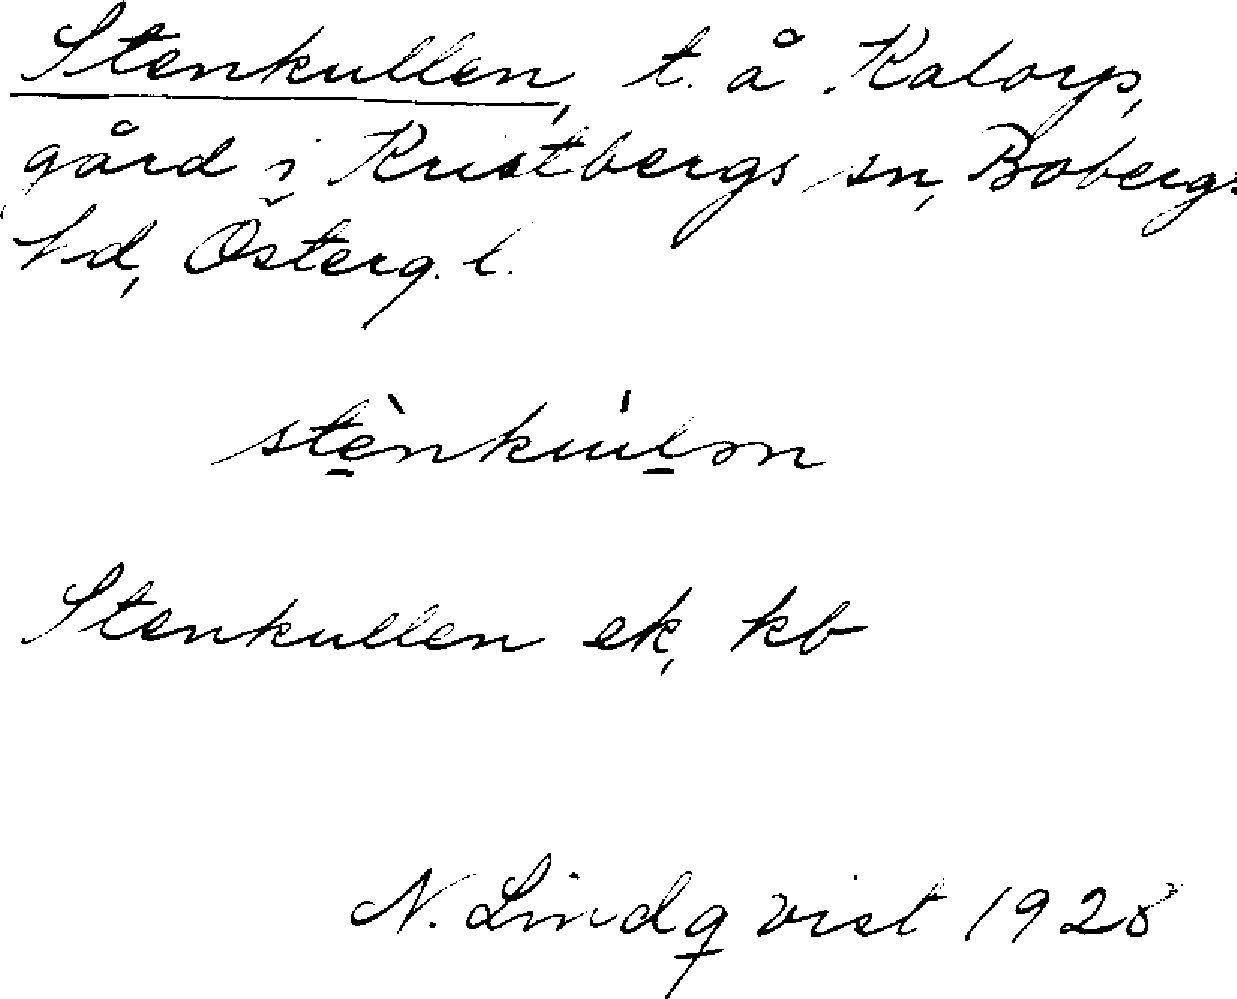 Stenkullen, t. å Kalorp,
gård i Kristbergs sn, Bobergs
hd, Österg. l.
stènku̍lən
Stenkullen ek, kb
N. Lindqvist 1928